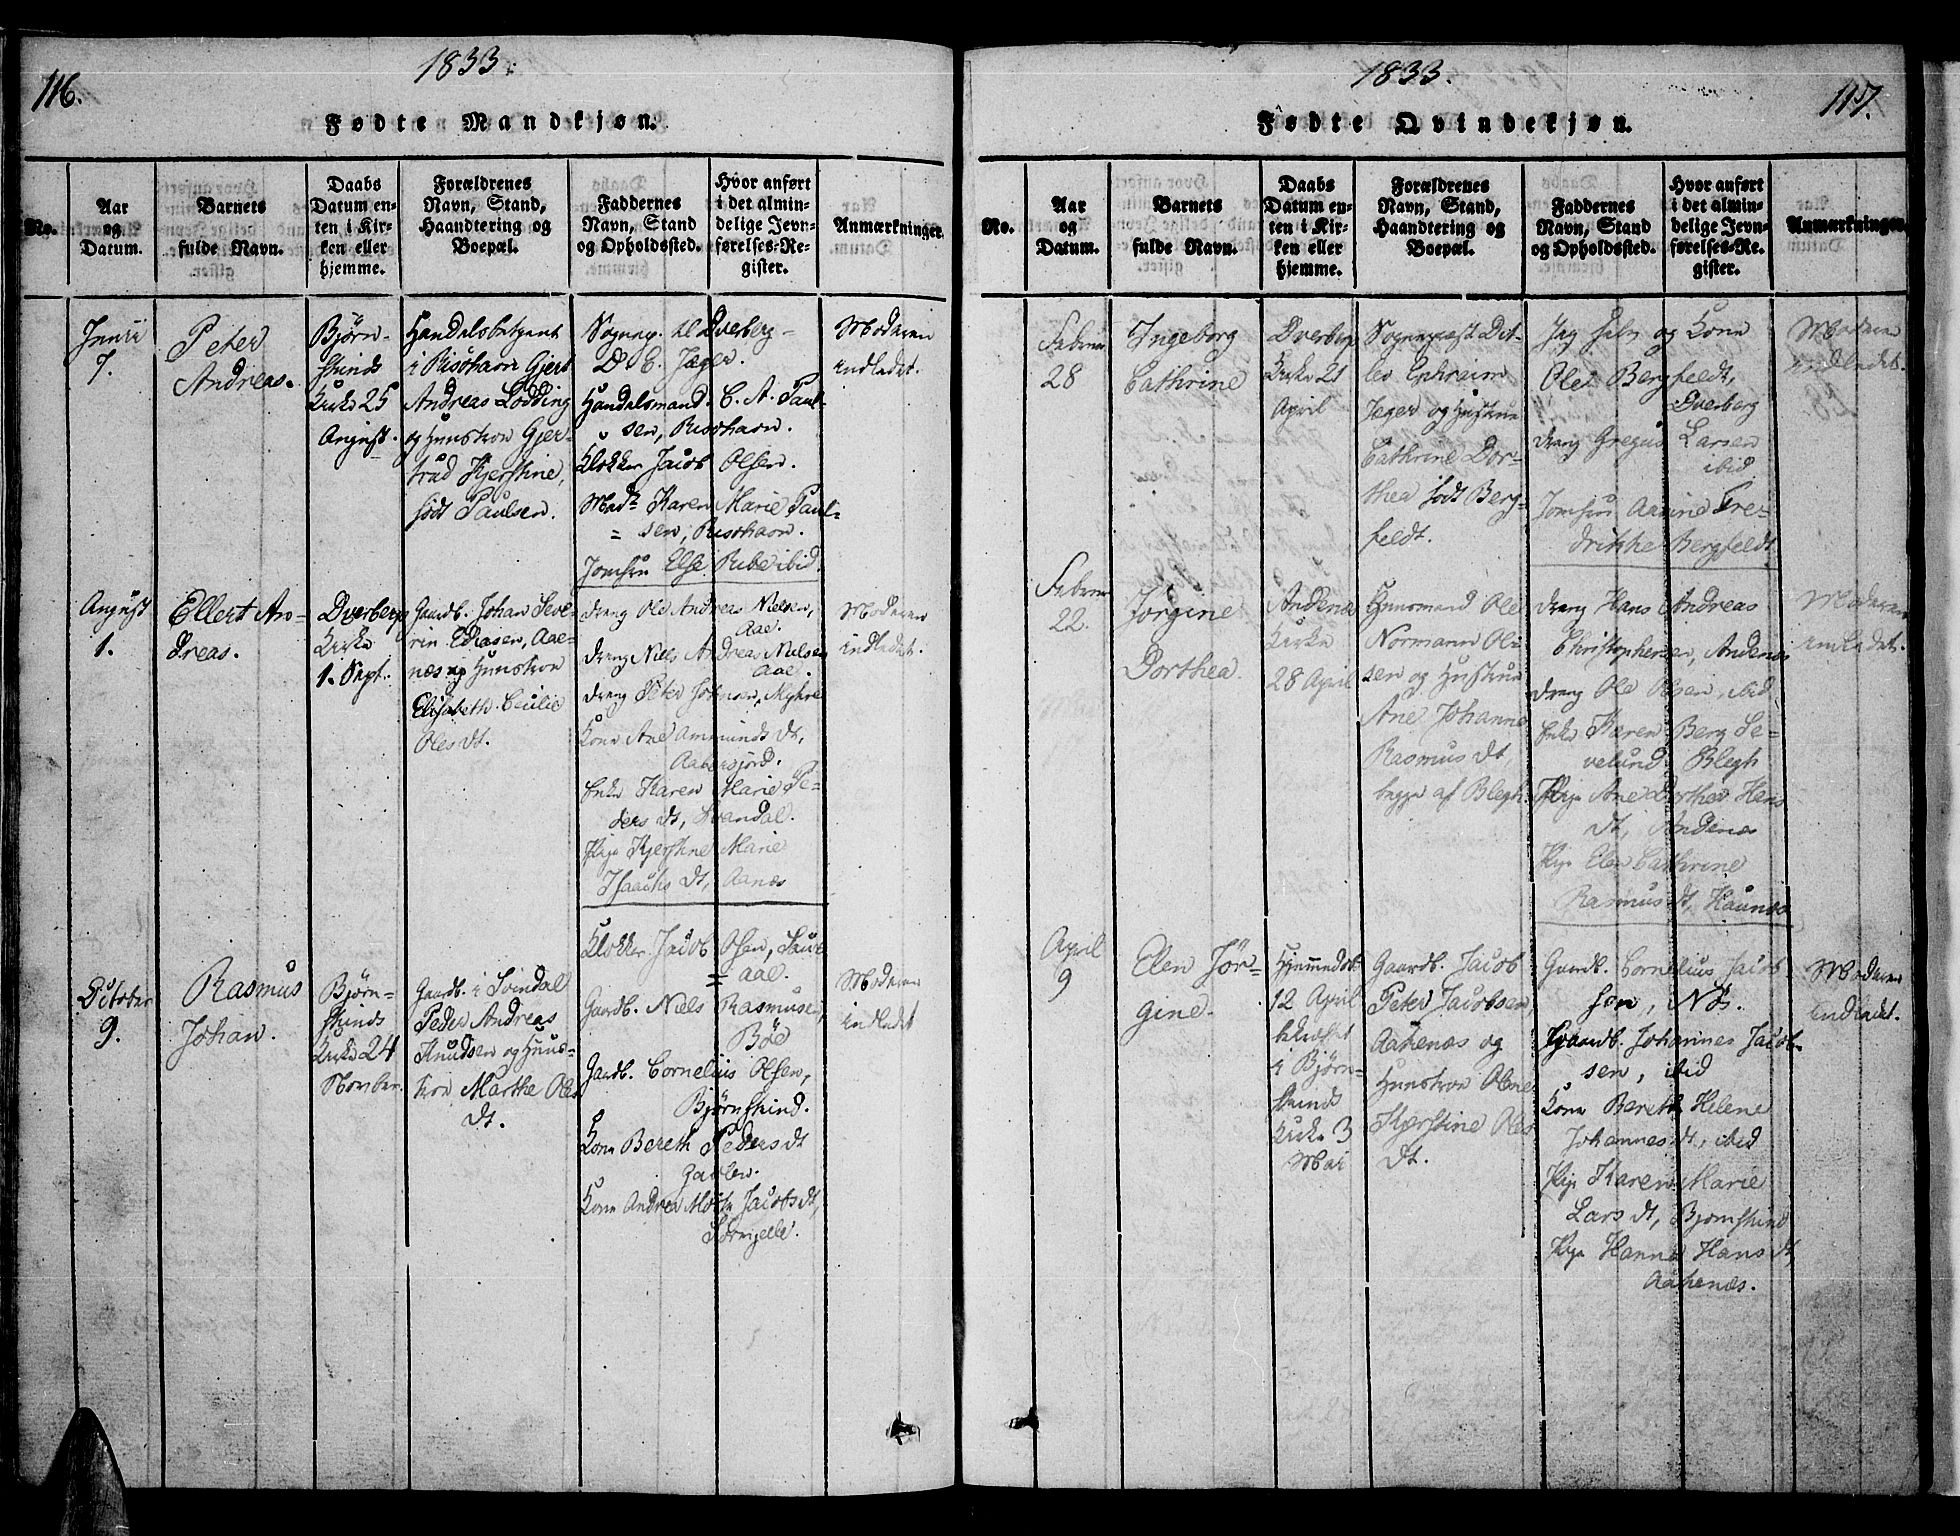 116.
1833.
Fødte Mandkjøn.
No.
Aar
og
Datum.
Barnets
fulde Navn.
Daabs
Datum en-
ten i Kir-
ken eller
hjemme.
Forældrenes
Navn, Stand,
Haandtering og
Boepæl.
Faddernes
Navn, Stand
og Opholdssted.
Hvor anført
i det almin-
delige Jevn-
førelses-Re-
gister.
Anmærkninger.
Junii
7.
Peter
Andreas.
Bjørn-
skinds
Kirke 25
August.
Handelsbetjent
i Risøhavn Gjert
Andreas Lodding
og Hunstron Gjer-
trud Kjerstine,
født Paulsen.
Sognep. til Dverberg
D. E. Jæger.
Handelsmand C. A. Paul-
sen, Risøhavn.
Klokker Jacob Olsen.
Madm Karen Marie Paul-
sen, Risøhavn.
Jomfru Else Rübe ibid.
Modoren
indledet.
August
1.
Ellert An-
dreas.
Dverberg
Kirke
1. Sept.
Gaardb. Johan Seve-
rin Eliasen, Aae-
næs og Hunstron
Elisabeth Cecilie
Olesdt.
dreng Ole Andreas Nielsen,
Aae.
dreng Niels Andreas Nielsen
Aae.
dreng Peter Johnsen,
Kone Ane Ammundsdt,
Aabersjord.
Enke Karen Marie Pe-
dersdt, Svandal.
Pige Kjerstine Marie
Isaachsdt, Aanæs
Modoren
indledet.
October
9.
Rasmus
Johan.
Bjørn-
skinds
Kirke 24
Novber.
Gaardb. i Svindal
Peder Andreas
Knudsen og Huus-
tron Marthe Oles
dt.
Klokker Jacob Olsen, Saur
aae.
Gaardb. Niels Rasmusen,
Böe
Gaardb. Cornelius Olsen,
Bjørnskind.
Kone Bereth Pedersdt
Kone Andrea Jacobsdt,
Modoren
indledet
117.
1833.
Fødte Qvindekjøn.
No.
Aar
og
Datum.
Barnets
fulde Navn.
Daabs
Datum en-
ten i Kir-
ken eller
hjemme.
Forældrenes
Navn, Stand,
Haandtering og
Boepæl.
Faddernes
Navn, Stand
og Opholdssted.
Hvor anført
i det almin-
delige Jevn-
førelses-Re-
gister.
Anmærkninger.
Februar
28
Ingeborg
Cathrine
Dverberg
Kirke 21
April
Sognepræst Dit-
lev Ephraim
Jeger og Hustrue
Cathrine Dor-
thea født Berg-
feldt.
Jeg selv og Kone
Ole Bergfeldt,
Dverberg
dreng Gregus Larsen
ibid
Jomfru Aanine Fre-
drikke Bergfeldt
Moderen
indledet.
Februar
22.
Jørgine
Dorthea.
Andenæs
Kirke
28 April
Huusmand Ole
Normann Ol-
sen og Hustrue
Ane Johanne
Rasmusdt,
begge af Blegh.
dreng Hans Andreas
Christophersen, Andenæs
dreng Ole Olsen, ibid
Enke Karen Berg Se-
velund Blegh
Pige Ane Dorthea Hans
dt, Andenæs
Pige Elen Cathrine
Rasmusdt, Haunæs
Moderen
indledet.
April
9
Elen Jör-
gine.
Hjemmedøbt
12 April
bekræftet
i Bjørn-
skinds
Kirke 3
Mai
Gaardb. Jacob
Peter Jacobsen,
Aakenæs og
Hunstron Olene
Kjerstine Oles
dt.
Gaardb. Cornelius Jacob
sen, Nös.
Gaardb. Johannes Jacob-
sen, ibid
Kone Bereth Helene
Johannesdt, ibid
Pige Karen Marie
Larsdt, Bjørnskind
Pige Hanna Hansdt,
Aakenæs.
Modoren
indledet.